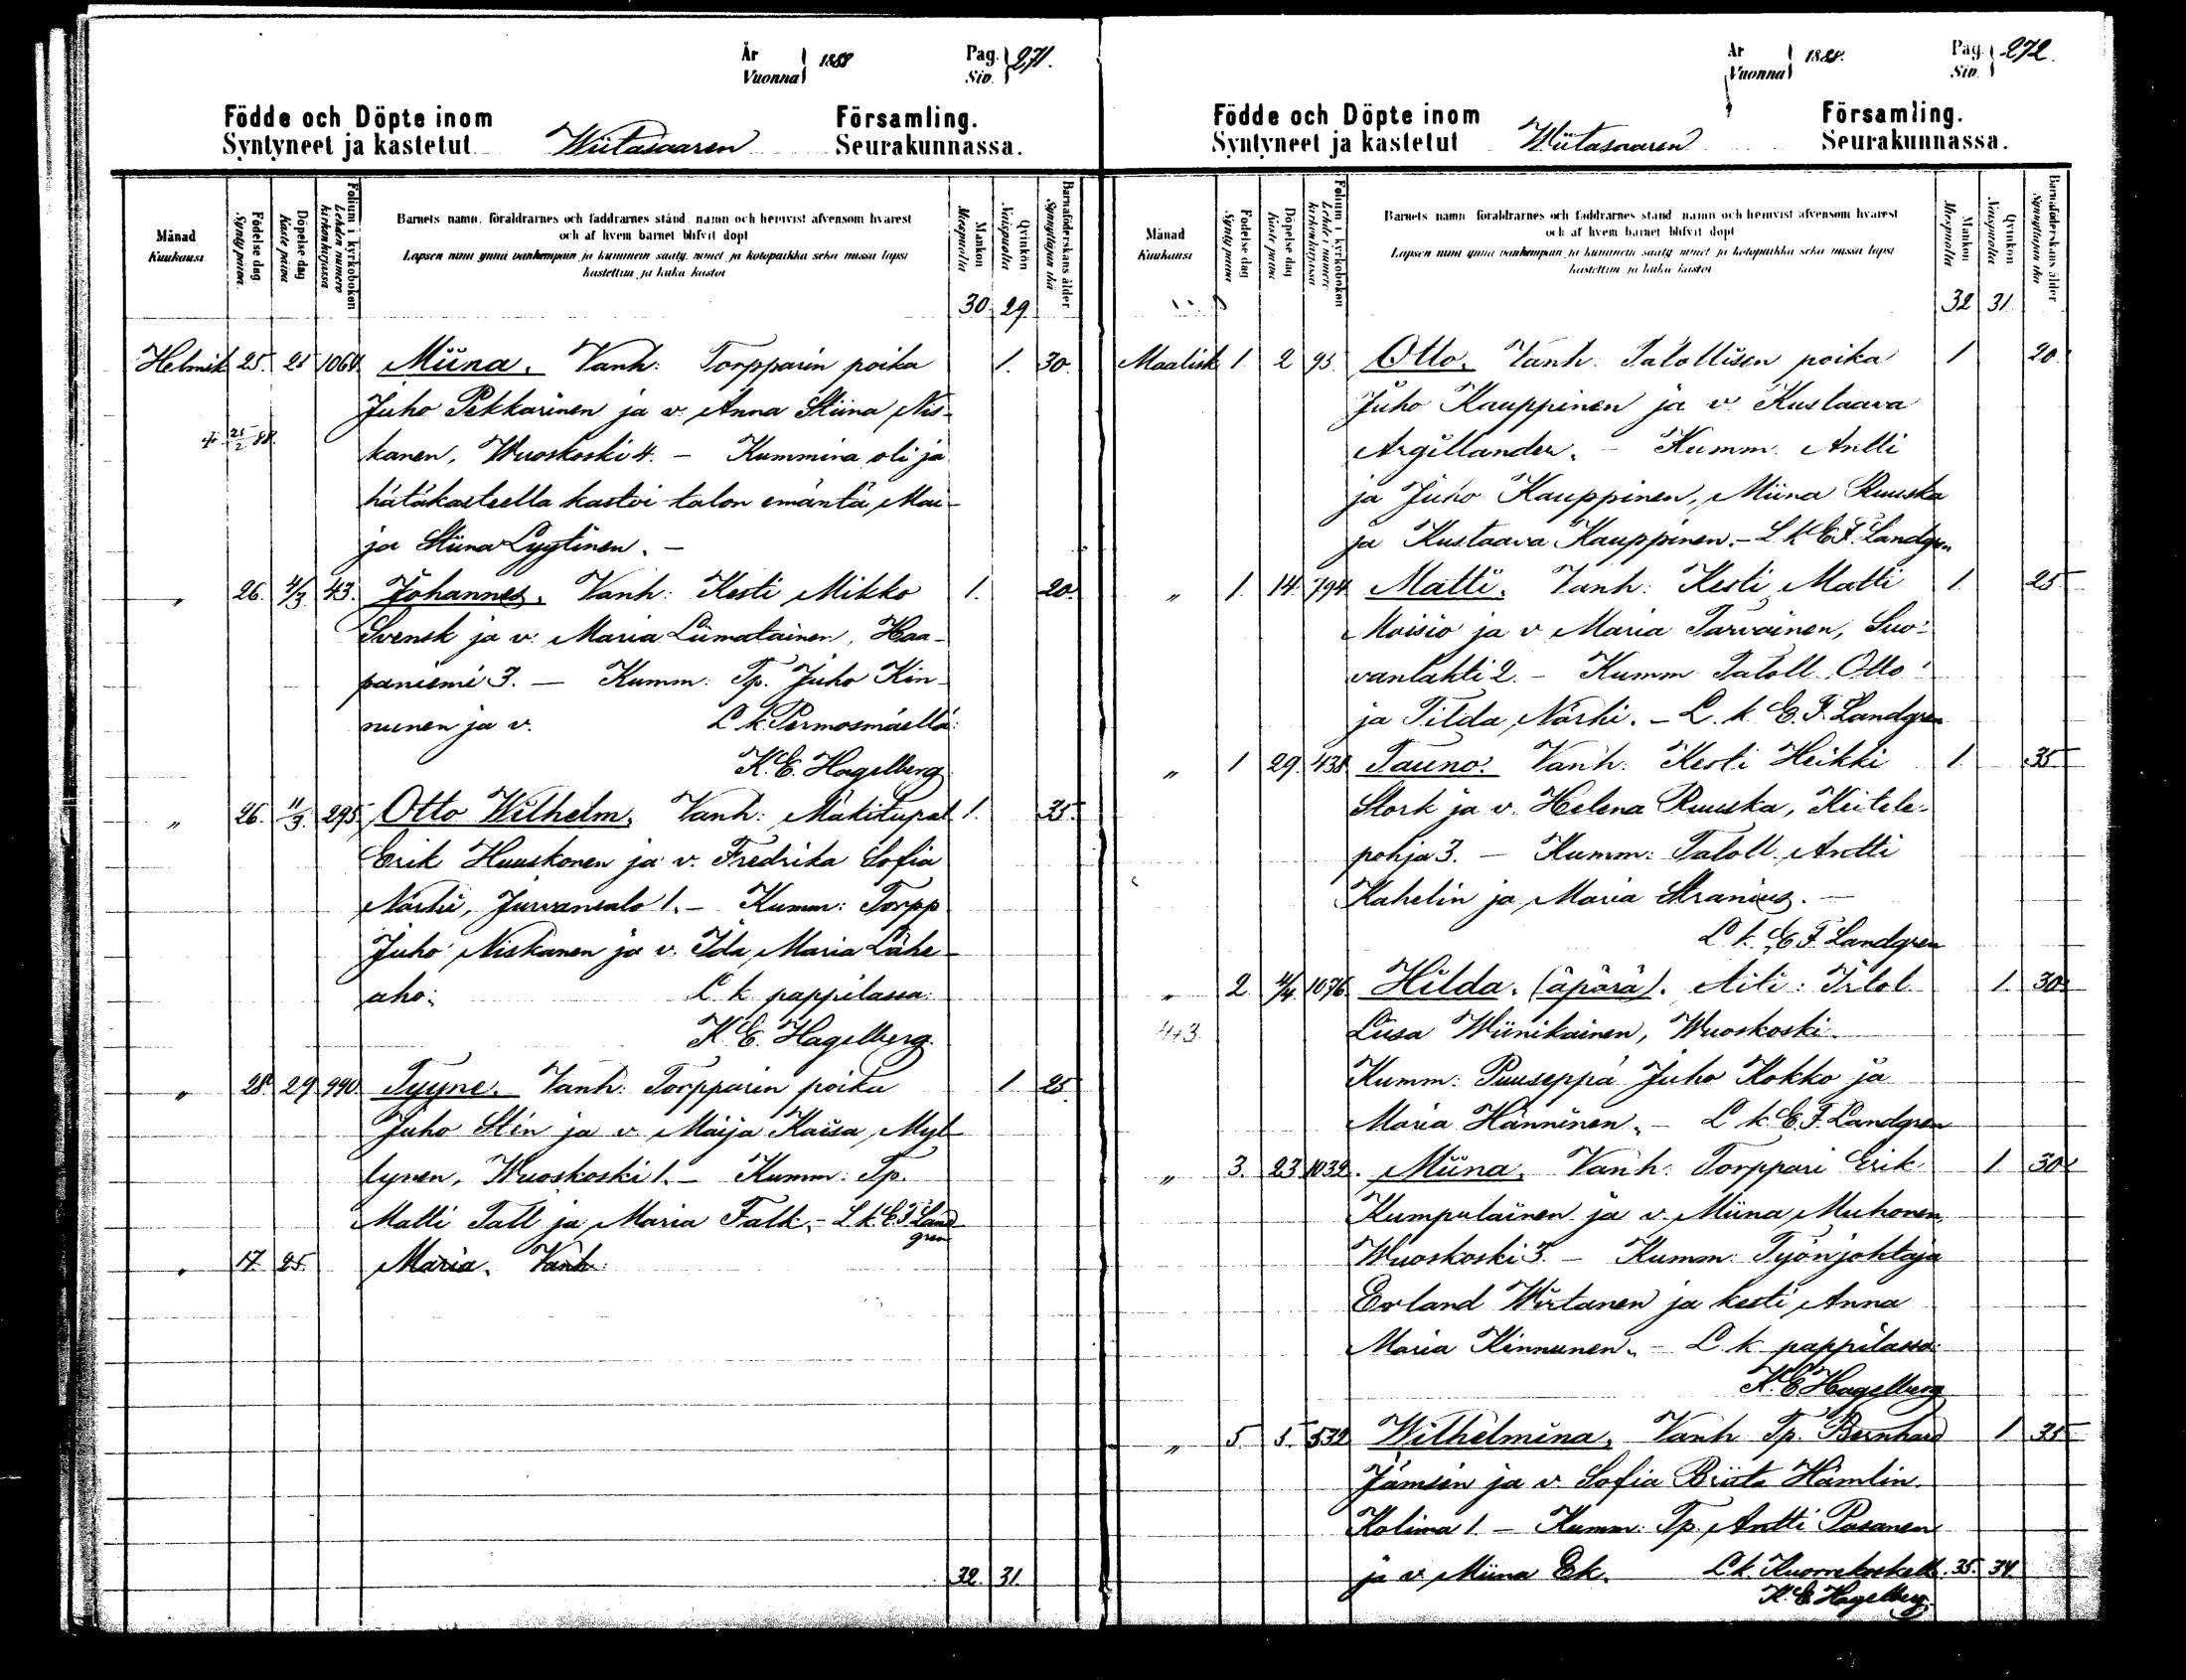 År
Vuonna 1888
Pag.
Siv. 271.
Födde och Döpte inom Församling.
Syntyneet ja kastetut Wiitasaaren Seurakunnassa.
Månad
Kuukausi
Födelse dag
Synty päivä.
Döpelse dag
Kaste päivä
Folium i kyrkobokon
Lehden numero
kirkonkirjassa
Barnets namn, föräldrarnes och faddrarnes stånd, namn och hemvist afvensom hvarest
och af hvem barnet blifvit döpt
Lapsen nimi ynnä vanhempain ja kummein sääty, nimet ja kotopaikka sekä missä lapsi
kastettiin ja kuka kastoi
Mankön
Miespuolia
Qvinkön
Naispuolia
Barnaföderskans ålder
Synnyttäjän ikä
30. 29.
Helmik 25. 25 1064 Miina. Vanh: Torpparin poika 1. 30.
Juho Pekkarinen ja v. Anna Stiina Nis-
25/2 88. kanen, Wuoskoski 4. – Kummina oli ja
hätäkasteella kastoi talon emäntä Mai-
ja Stiina Lyytinen. –
" 26. 4/3. 43. Johannes. Vanh: Kesti Mikko 1. 20.
Svensk ja v. Maria Liimatainen, Haa-
paniemi 3. – Kumm: Tp. Juho Kin-
nunen ja v. L. k. Permosmäellä:
K. E. Hagelberg
" 26. 11/3. 295. Otto Wilhelm. Vanh: Mäkitupal 1. 35.
Erik Huuskonen ja v. Fredrika Sofia
Närhi, Jurvansalo 1. – Kumm: Torpp
Juho Niskanen ja v. Ida Maria Lähe-
aho: L. k. pappilassa:
K. E. Hagelberg.
" 28. 29. 990. Tyyne. Vanh: Torpparin poika 1 25.
Juho Stén ja v. Maija Kaisa Myl-
lynen, Wuoskoski 1. – Kumm: Tp.
Matti Tall ja Maria Falk. – L. k. E. F. Land
gren
" 17. 25. Maria. Vanh:
32. 31.
År
Vuonna 1888.
Pag.
Siv. 272.
Födde och Döpte inom Församling.
Syntyneet ja kastetut Wiitasaaren Seurakunnassa.
Månad
Kuukausi
Födelse dag
Synty päivä
Döpelse dag
Kaste päivä
Folium i kyrkobokon
Lehden numero
kirkonkirjassa
Barnets namn, föräldrarnes och faddrarnes stånd, namn och hemvist afvensom hvarest
och af hvem barnet blifvit döpt
Lapsen nimi ynnä vanhempain ja kummein sääty nimet ja kotopaikka sekä missä lapsi
kastettiin ja kuka kastoi
Mankön
Miespuolia
Qvinkön
Naispuolia
Barnaföderskans ålder
Synnyttäjän ikä
32 31
Maalisk 1. 2 95. Otto. Vanh: Talollisen poika 1 20.
Juho Kauppinen ja v. Kustaava
Argillander. – Kumm. Antti
ja Juho Kauppinen, Miina Ruuska
ja Kustaava Kauppinen. – L. k. E. F. Landgren
" 1. 14. 794 Matti. Vanh: Kesti Matti 1. 25
Moisio ja v. Maria Tarvainen, Suo-
vanlahti 2. – Kumm Taloll. Otto
ja Tilda Närhi. – L. k. E. F. Landgren
" 1 29. 438 Tauno. Vanh: Kesti Heikki 1. 35
Stork ja v. Helena Ruuska, Keitele-
pohja 3. – Kumm: Taloll. Antti
Kahelin ja Maria Stranius. –
L. k. E. F. Landgren
" 2 4/4 1076. Hilda. (äpärä). Äiti: Itlol. 1. 30.
443 Liisa Wiinikainen, Wuoskoski.
Kumm: Puuseppä Juho Kokko ja
Maria Hänninen. – L. k. E. F. Landgren
" 3. 23 1032. Miina. Vanh: Torppari Erik 1 30
Kumpulainen ja v. Miina Muhonen,
Wuoskoski 3. – Kumm: Työnjohtaja
Erland Wirtanen ja kesti Anna
Maria Kinnunen. – L. k. pappilassa:
K. E. Hagelberg
" 5. 5. 532 Wilhelmina. Vanh Tp. Bernhard 1 35
Jämsén ja v. Sofia Briita Hämlin.
Kolima 1. – Kumm: Tp. Antti Pasanen
ja v. Miina Ek. L. k. 35. 34
K. E. Hagelberg.